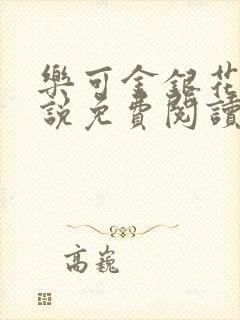 樂可金銀花
說免費閱讀
高巍